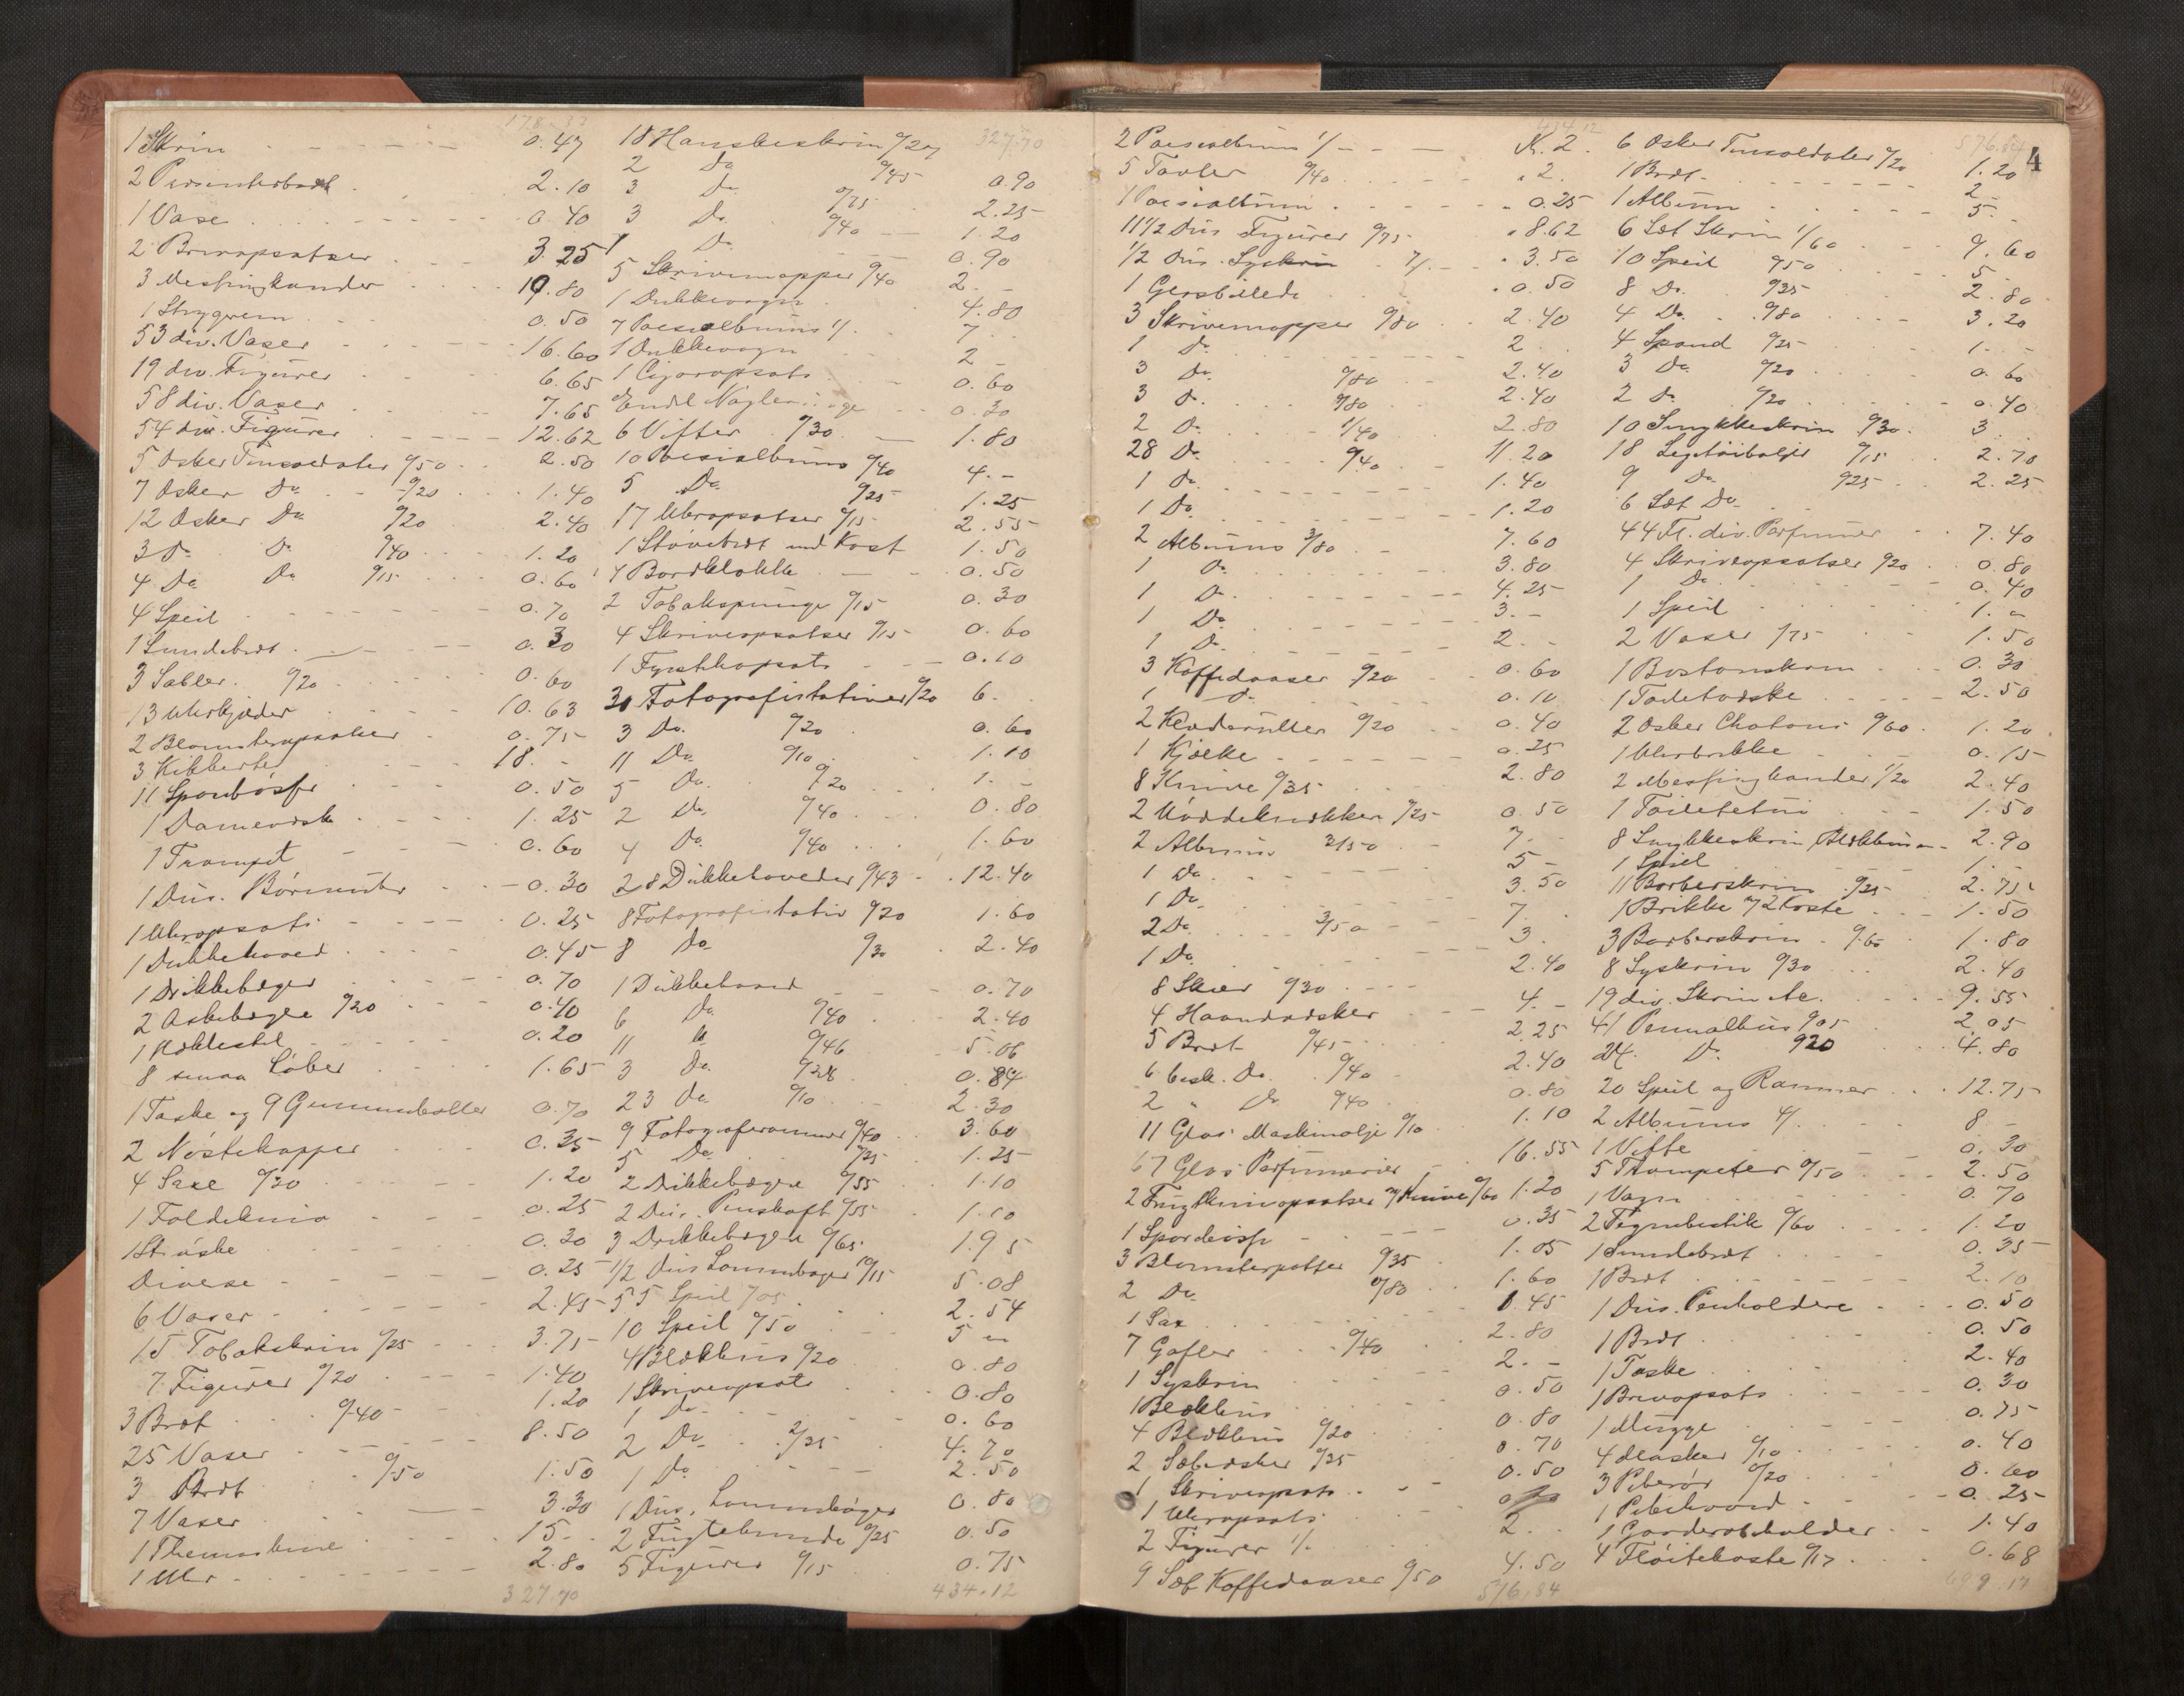 178.33
1 Skrin 0.47
2 Presenterbrdt 2.10
1 Vase 0.40
2 Brevopsatser 3.25
3 Messingkander 19.80
1 Strygrem 0.50
53 div. Vaser 16.60
19 div. Figurer 6.65
58 div. Vaser 7.65
54 div. Figurer 12.62
5 Æsker Tinsoldater 0/50 2.50
7 Æsker Do 0/20 1.40
12 Æsker Do 0/20 2.40
3 Do Do 0/40 1.20
4 Do Do 0/15 0.60
4 Speil 0.70
1 Lundebrdt 0.30
3 Sabler 0/20 0.60
13 Uhrkjæder 10.63
2 Blomsteropsatser 0.75
3 Kikkerter 18.-
11 Sparebøsser 0.50
1 Damevæske 1.25
1 Trompet 0.60
1 Dus. Børnuhr 0.30
1 Uhropsats 0.25
1 Dukkehoved 0.45
1 Drikkebæger 0.70
2 Askebægre 0/20 0.40
1 0.20
8 smaa Løber 1.65
1 Taske og 9 Gummiboller 0.70
2 Nøstekopper 0.35
4 Saxe 0/30 1.20
1 Foldekniv 0.25
1 0.30
Diverse 0.25
6 Vaser 2.45
15 Tobakskrin 0/25 3.75
7 Figurer 0/20 1.40
3 Brdt 0/40 1.20
25 Vaser 8.50
3 Brdt 0/50 1.50
7 Vaser 3.30
1 Themaskine 15.-
1 Uhr 2.80
327.70
327.70
18 Hanskeskrin
2 Do 0/45 0.90
3 Do 0/75 2.25
3 Do 0/40 1.20
1 Do 0.90
5 Skrivemapper 0/40 2.-
1 Dukkevogn 4.80
7 Poesialbums 1/. 7
1 Dukkevogn 2-
1 Cigaropsats 0.60
0.30
6 Vifter 0/30 1.80
10 Poesialbums 0/40 4.-
5 Do 0/25 1.25
17 Uhropsatser 0/15 2.55
1 Støvebrdt med Kost 1.50
1 Bordklokke 0.50
2 Tobakspunge 0/15 0.30
4 Skriveopsatser 0/15 0.60
1 Fyrstikopsats 0.10
30 Fotografistativer 0/20 6.
3 Do. 0/20 0.60
11 Do 0/10 1.10
5 Do. 0/20 1.-
2 Do 0/40 0.80
4 Do 0/40 1.60
28 Dukkehoveder 0/43 12.40
8 Fotografistativ 0/20 1.60
8 Do 0/30 2.40
1 Dukkehoved 0.70
6 Do 0/40 2.40
11 Do 0/46 5.06
3 Do 0/28 0.84
23 Do 0/10 2.30
9 Fotograframmer 0/40 3.60
5 Do 0/25 1.25
2 Drikkebægre 0/55 1.10
2 Dus. Penskaft 0/55 1.10
3 Drikkebægre 0/65 1.95
1/2 Dus Lommebøger 10/15 5.08
55 Speil 2.54
10 Speil 0/50 5 -
4 Blækhus 0/20 0.80
1 Skriveopsats 0.80
1 Do 0.60
2 Do 2/35 4.70
1 Do 2.50
1 Dus. Lommebøger 0.80
2 0/25 0.50
5 Figurer 0/15 0.75
434.12
434.12
2 Poesialbums 1/- Kr. 2.
5 Tavler 0/40 2.
1 Poesialbum 0.25
11 1/2 Dus Figurer 0/75 8.62
1/2 Dus. Syskrin 7/. 3.50
1 Glasbillede 0.50
3 Skrivemapper 0/80 2.40
1 Do. 2
3 Do. 0/80 2.40
3 Do. 0/80 2.40
2 Do. 1/40 2.80
28 Do. 0/40 11.20
1 Do. 1.40
1 Do. 1.20
2 Albums 3/80 7.60
1 Do. 3.80
1 Do. 4.25
1 Do 3.-
1 Do. 2.-
3 Kaffedaaser 0/20 0.60
1 Do. 0.10
2 Kladeruller 0/20 0.40
1 Kjælke 0.25
8 Knive 0/35 2.80
2 Nøddeknækker 0/25 0.50
2 Albums 3/50 7.-
1 Do 5-
1 Do 3.50
2 Do. 3/50 7.
1 Do. 3.
8 Skeer 0/30 2.40
4 Haandvæsker 4.-
5 Brdt 0/45 2.25
6 besk. Do. 0/40 2.40
2 " Do 0/40 0.80
11 Glas Maskinolje 0/10 1.10
67 Glas Parfumerier 16.55
2 Frugtknivopsatser m/ Knive 0/60 1.20
1 Sparebøsse 0.35
3 Blomsterpotter 0/35 1.05
2 Do 0/80 1.60
1 Sax 0.45
7 Gafler 0/40 2.80
1 Syskrin 2.-
1 Blækhus 0.50
4 Blækhus 0/20 0.80
2 Sæbeæsker 0/35 0.70
1 Skriveopsats 0.50
1 Uhropsats
2 Figurer 1/. 2.
9 Sæt Kaffedaaser 0/50 4.50
576.84
576.84
4
6 Æsker Tinsoldater 0/20 1.20
1 Brdt. 2-
1 Album 5.-
6 Sæt Skrin 1/60 9.60
10 Speil 0/50 5.
8 Do. 0/35 2.80
4 Do. 0/80 3.20
4 Spand 0/25 1.-
3 Do 0/20 0.60
2 Do 0/20 0.40
10 Smykkeskrin 0/30 3
18 Legetøibaljer 0/15 2.70
9 Do 0/25 2.25
6 Sæt Do
44 Fl. div. Parfumer 7.40
4 Skriveopsatser 0/20 0.80
1 Do 0.40
1 Speil 1.-
2 Vaser 0/75 1.50
1 Bostonskrin 0.30
1 Toiletæske 2.50
2 Æsker Chatons 0/60 1.20
1 Uhrbrikke 0.15
2 Messingkander 1/20 2.40
1 Toiletetui 1.50
8 Smykkeskrin, Blækhus 2.90
1 Speil 1.-
11 Barberskrin 0/25 2.75
1 Brikke m/ 2 Koste 1.50
3 Barberskrin 0/60 1.80
8 Syskrin 0/30 2.40
19 div. Skrin &c. 9.55
41 Pennalhus 0/05 2.05
24 Do 0/20 4.80
20 Speil og Rammer 12.75
2 Albums 4/. 8 -
1 Vifte 0.30
5 Trompeter 0/50 2.50
1 Vogn 0.70
2 Tegnebestik 0/60 1.20
1 Lundebrdt 0.35
1 Brdt 2.10
1 Dus. Penholdere 0.50
1 Brdt 0.50
1 Taske 2.40
1 Brevopsats 0.30
1 Mugge 0.75
4 Masker 0/10 0.40
3 Piberør 0/20 0.60
1 Pibehoved 0.25
1 Garderobeholder 1.40
4 Fløitekoste 0/17 0.68